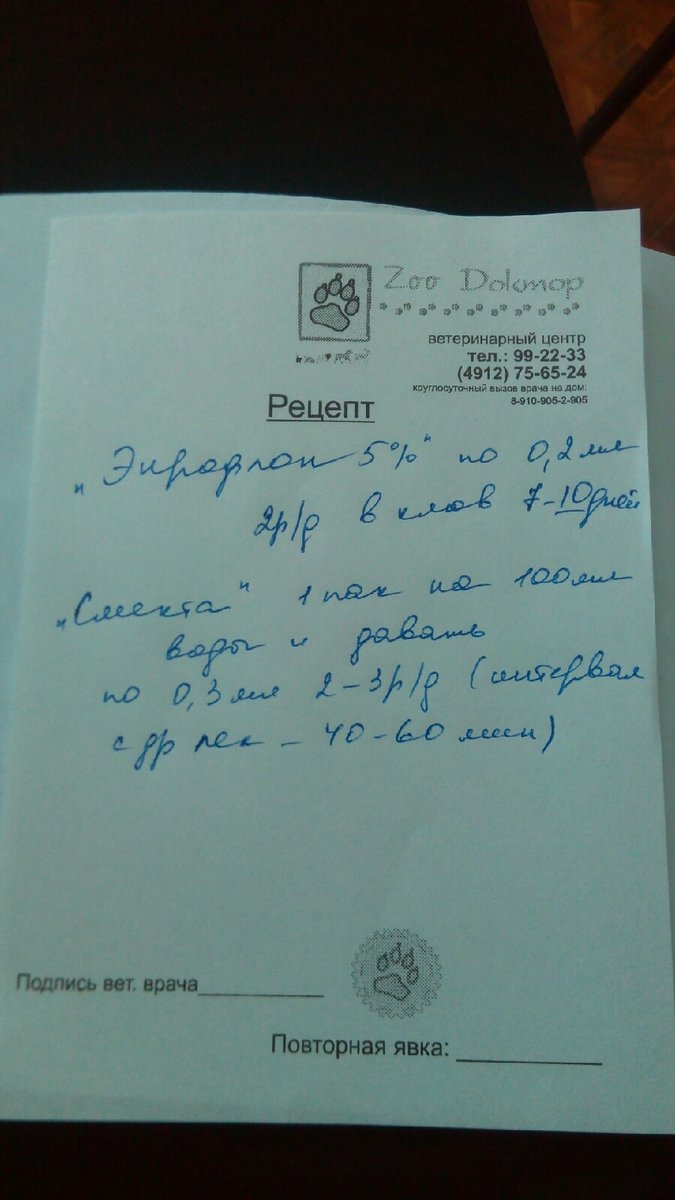 Zoo Доктор
ветеринарный центр
тел.: 99-22-33
(4912) 75-65-24
круглосуточный вызов врача на дом:
8-910-905-2-905
Рецепт
„Энрофлон 5%" по 0,2 мл
2р/д в клюв 7-10 дней
„Смекта" 1 пак на 100 мл
воды и давать
по 0,3 мл 2-3р/д (интервал
с др лек - 40-60 мин)
Подпись вет. врача
Повторная явка: